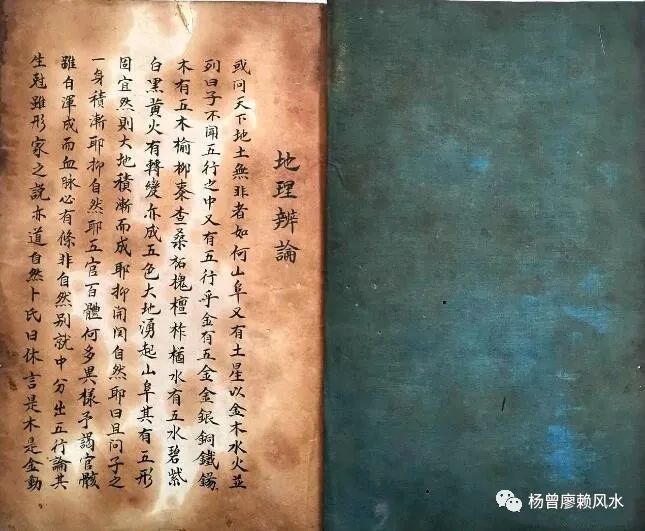 地理辨論
或問天下地土無非者如何山阜又有土星以金木水火並
列曰子不聞五行之中又有五行乎金有五金金銀銅鐵錫
木有五木榆柳棗查桑柘槐檀柞楢水有五水碧紫
白黑黄火有轉變亦成五色大地湧起山阜其有五形
固宜然則大地積漸而成耶抑開闢自然耶曰且問子之
一身積漸耶抑自然耶五官百體何多異樣予謂官骸
雖自渾成而血脉必有條非自然別就中分出五行論其
生尅雖形家之説亦道自然卜氏曰休言是木是金動
杨曾廖赖风水